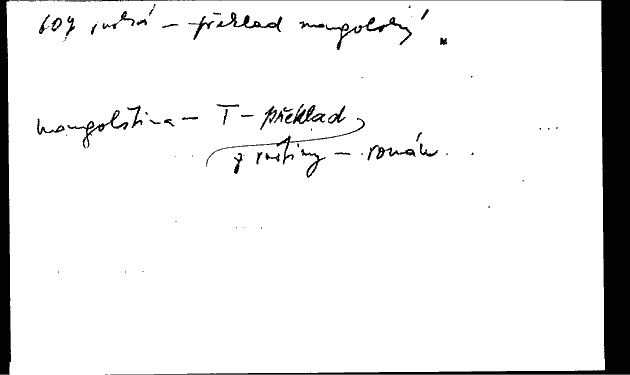 607 , ruská – překlad mongolský
mongolština – T – překlad
z ruštiny – román